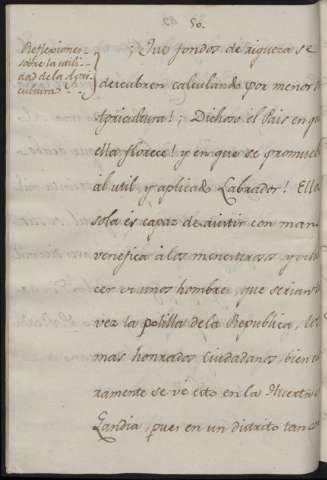 50.
Reflexiones
sobre la utili-
dad de la Agri-
cultura
¡Que fondos de riqueza se
descubren calculando por menor
Agricultura!; Dichoso el Pais en q
ella florece! y en que se promueb
al util, y aplicado Labrador! Ella
sola es capaz de asistir con man
venefica á los menesterosos, y
cer de unos hombres, que serian
vez la polilla de la Republica, los
mas honrados Ciudadanos, bien c
ramente se vé esto en la Huerta d
Gandia, pues en un distrito tan co